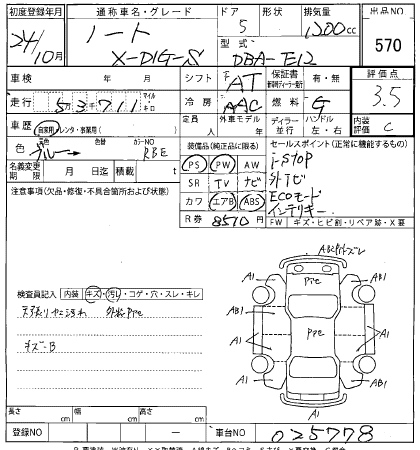 初度登録年月 通称車名・グレード ドア 形状 排気量 出品NO
24/10月 ノート X-DIG-S 5 1200cc 570
型式 DBA-E12
車検 年 月 シフト FAT 保証書 有・無 評価点
走行 53千711 マイル キロ 冷房 AAC 燃料 G 3.5
車歴 自家用・レンタ・事業用( ) 定員 人 外車モデル 年 ディーラー 並行 ハンドル 左・右 内装評価 C
色 元色 ブルー→ 色替 カラーNO RBE 装備品(純正品に限る) セールスポイント(正常に機能するもの)
名義変更期限 月 日迄 積載 t PS PW SW i-STOP
注意事項(欠品・修復・不具合箇所および状態) SR TV ナビ 外ナビ
カワ エアB ABS ECOモード
インテリキー
R券 8570円 FW キズ・ヒビ割・リペア跡・X要
検査員記入 内装 キズ・汚れ・コゲ・穴・スレ・キレ
天張りヤニ汚れ 外装PPC
キズ-B
A1 AB1 A1 AB1 A1 A1 A1 AB1 A1
PPC
PPC
長さ cm 幅 cm 高さ cm
登録NO ー 車台NO 025778